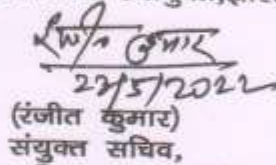 रंजीत कुमार
23/5/2022
(रंजीत कुमार)
संयुक्त सचिव,